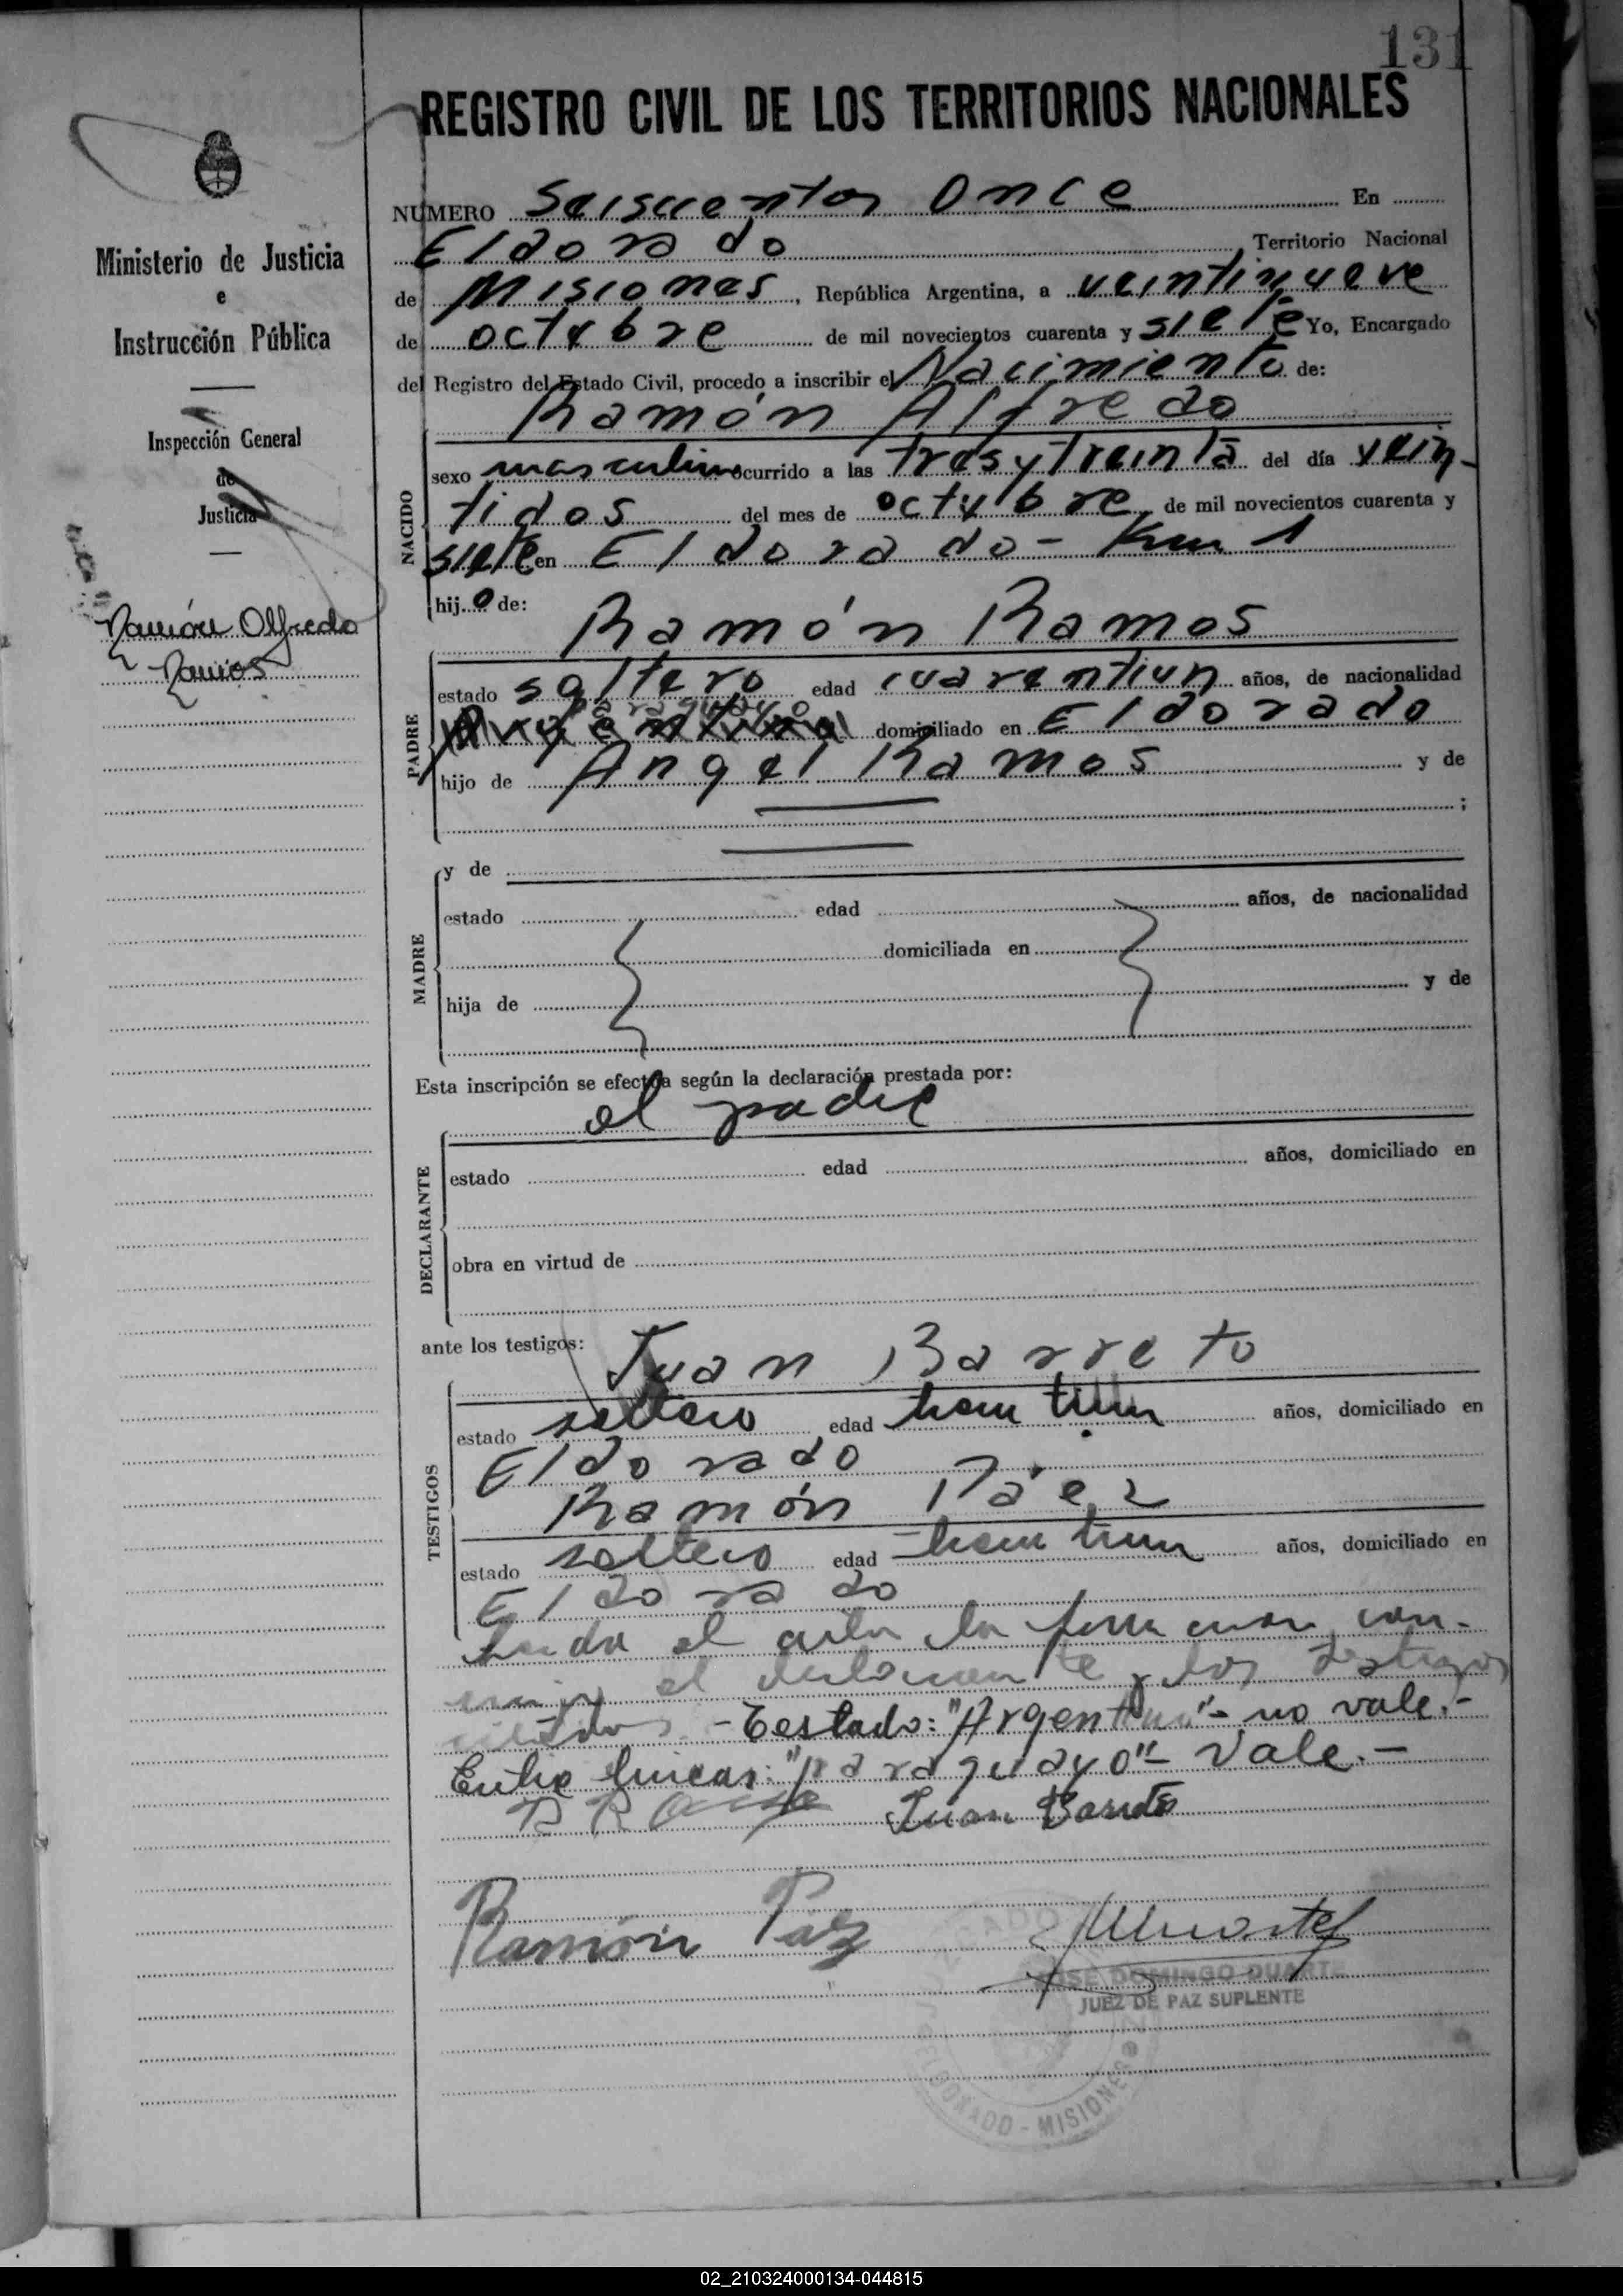 131
REGISTRO CIVIL DE LOS TERRITORIOS NACIONALES
Ministerio de Justicia
e
Instrucción Pública
Inspección General
de
Justicia
Ramón Alfredo
Ramos
NUMERO Seiscientos Once En
Eldorado Territorio Nacional
de Misiones, República Argentina, a veintinueve
de octubre de mil novecientos cuarenta y siete Yo, Encargado
del Registro del Estado Civil, procedo a inscribir el Nacimiento de:
Ramón Alfredo
NACIDO
sexo masculino ocurrido a las tres y treinta del día vein-
tidos del mes de octubre de mil novecientos cuarenta y
siete en Eldorado - Km 1
hijo de:
Ramón Ramos
PADRE
estado soltero edad cuarentiun años, de nacionalidad
paraguayo
Argentina domiciliado en Eldorado
hijo de Angel Ramos y de
;
MADRE
y de
estado edad años, de nacionalidad
domiciliada en
hija de y de
Esta inscripción se efectúa según la declaración prestada por:
el padre
DECLARANTE
estado edad años, domiciliado en
obra en virtud de
ante los testigos:
Juan Barreto
TESTIGOS
estado soltero edad años, domiciliado en
Eldorado
Ramón Páez
estado soltero edad años, domiciliado en
Eldorado
Leida el acta la firman con-
el declarante y los testigos
citados - Testado: "Argentino" - no vale.-
Entre lineas: "paraguayo" - Vale.-
Juan Barreto
Ramón Páez
JOSE DOMINGO DUARTE
JUEZ DE PAZ SUPLENTE
JUZGADO
ELDORADO - MISIONES
02_210324000134-044815